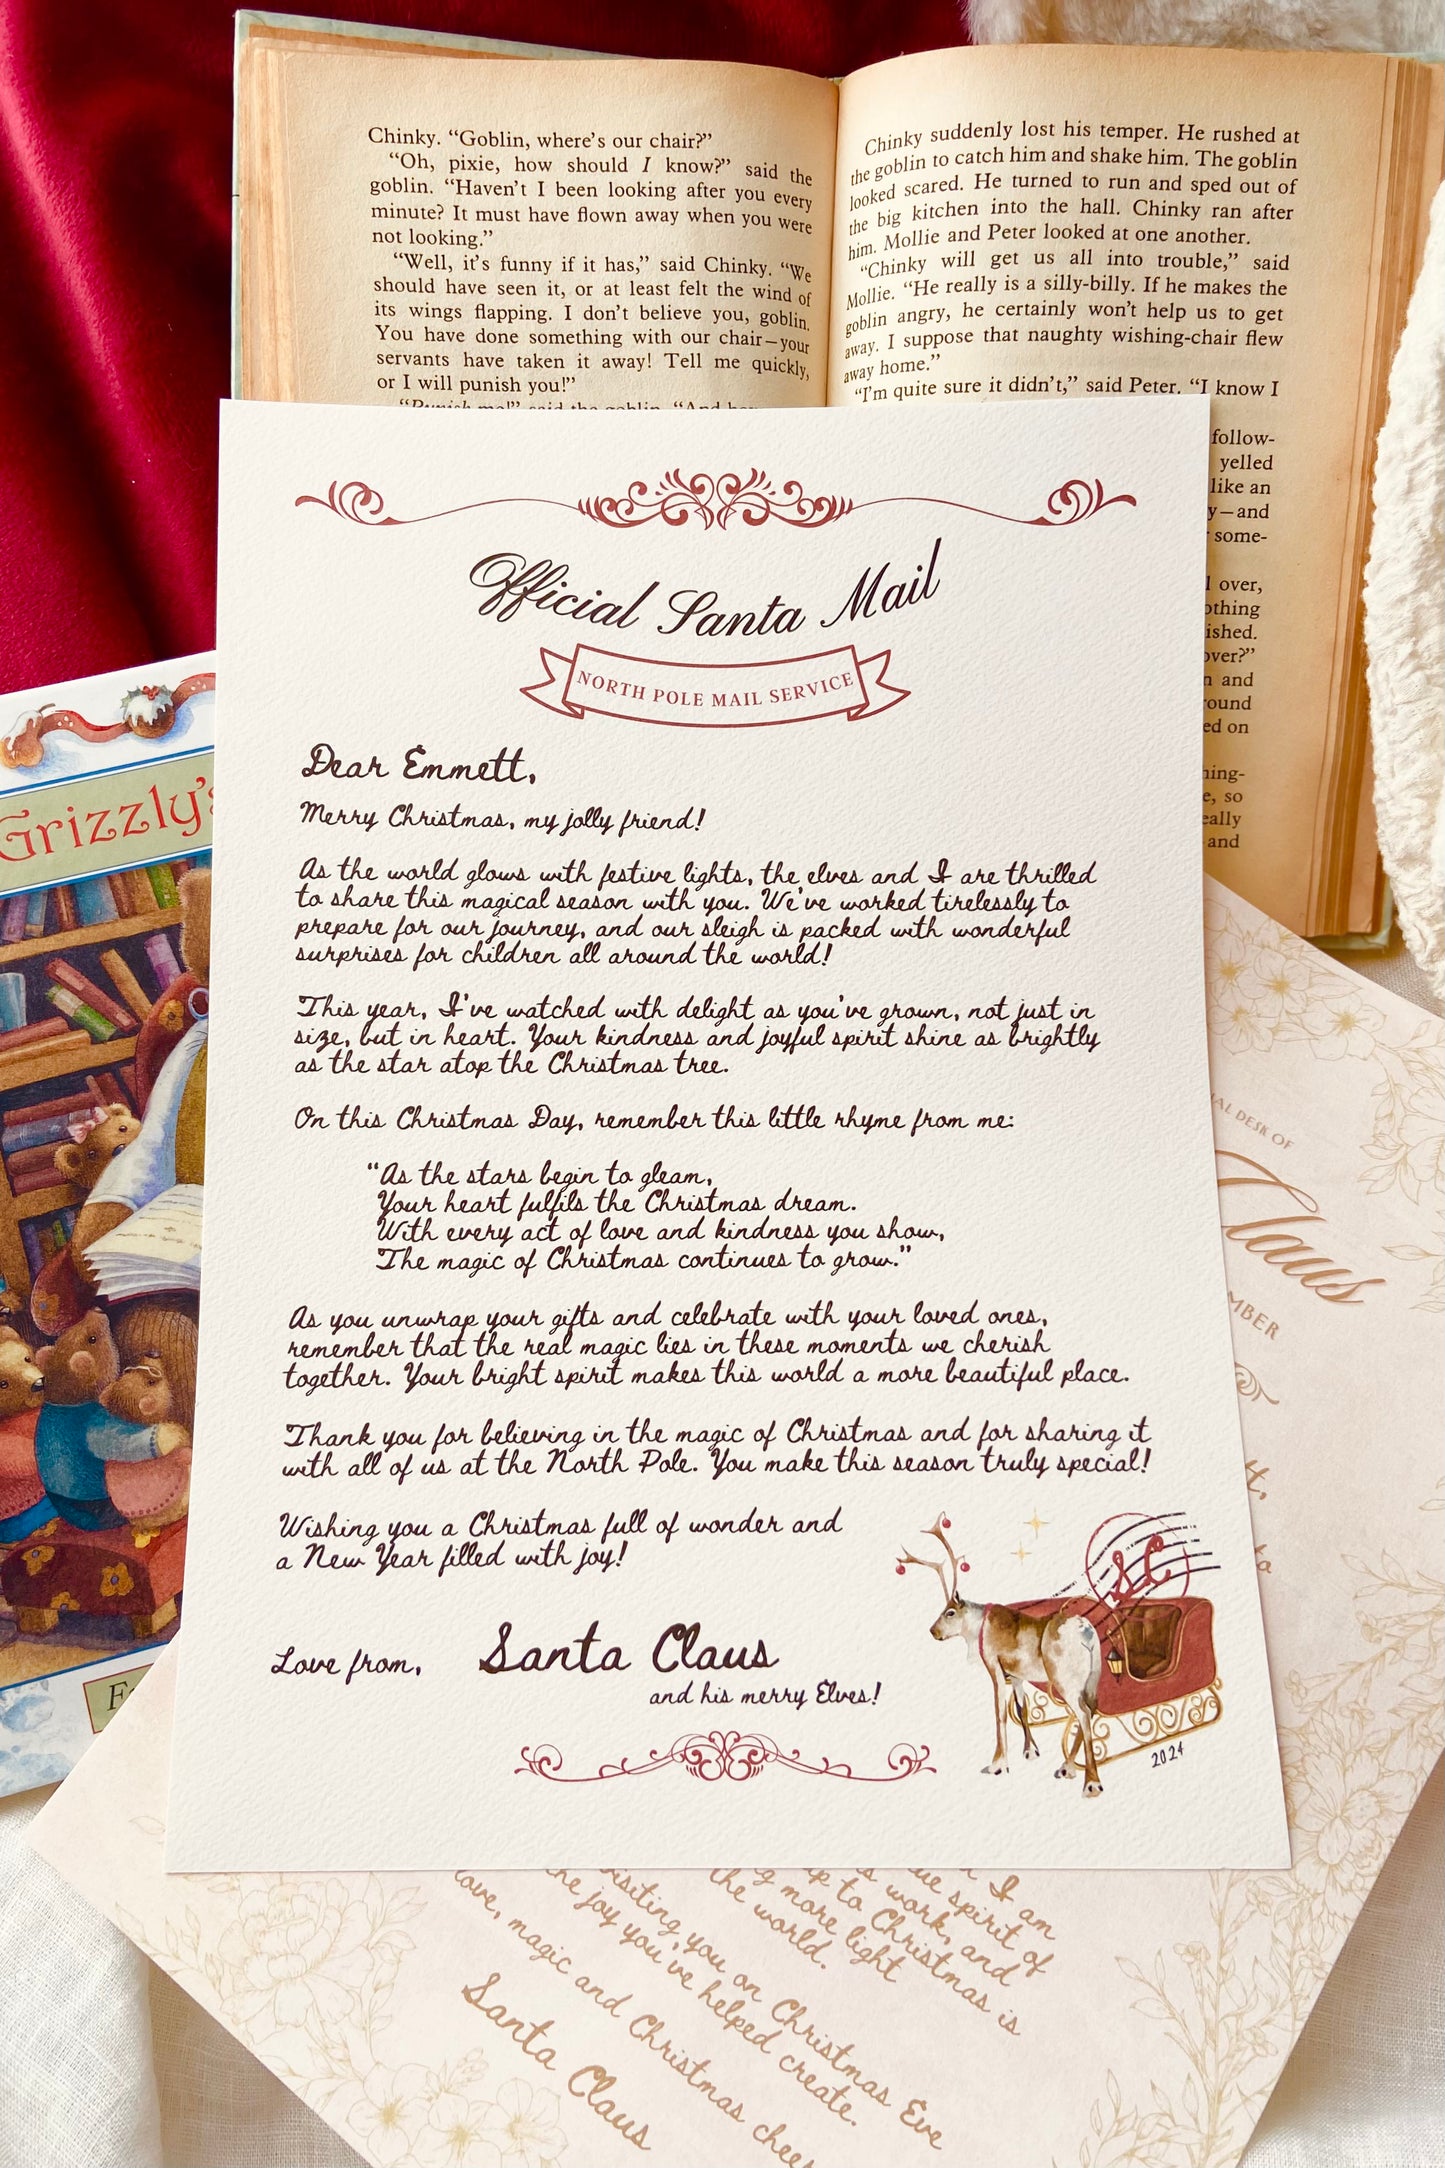 Chinky. “Goblin, where’s our chair?”
“Oh, pixie, how should I know?” said the
goblin. “Haven’t I been looking after you every
minute? It must have flown away when you were
not looking.”
“Well, it’s funny if it has,” said Chinky. “We
should have seen it, or at least felt the wind of
its wings flapping. I don’t believe you, goblin.
You have done something with our chair—your
servants have taken it away! Tell me quickly,
or I will punish you!”
“Punish me!” said the goblin. “And
Chinky suddenly lost his temper. He rushed at
the goblin to catch him and shake him. The goblin
looked scared. He turned to run and sped out of
the big kitchen into the hall. Chinky ran after
him. Mollie and Peter looked at one another.
“Chinky will get us all into trouble,” said
Mollie. “He really is a silly-billy. If he makes the
goblin angry, he certainly won’t help us to get
away. I suppose that naughty wishing-chair flew
away home.”
“I’m quite sure it didn’t,” said Peter. “I know I
follow-
yelled
like an
y—and
some-
over,
othing
ished.
over?”
and
round
ed on
hing-
so
eally
and
Official Santa Mail
NORTH POLE MAIL SERVICE
Dear Emmett,
Merry Christmas, my jolly friend!
As the world glows with festive lights, the elves and I are thrilled
to share this magical season with you. We've worked tirelessly to
prepare for our journey, and our sleigh is packed with wonderful
surprises for children all around the world!
This year, I've watched with delight as you've grown, not just in
size, but in heart. Your kindness and joyful spirit shine as brightly
as the star atop the Christmas tree.
On this Christmas Day, remember this little rhyme from me:
"As the stars begin to gleam,
Your heart fulfils the Christmas dream.
With every act of love and kindness you show,
The magic of Christmas continues to grow."
As you unwrap your gifts and celebrate with your loved ones,
remember that the real magic lies in these moments we cherish
together. Your bright spirit makes this world a more beautiful place.
Thank you for believing in the magic of Christmas and for sharing it
with all of us at the North Pole. You make this season truly special!
Wishing you a Christmas full of wonder and
a New Year filled with joy!
Love from,
Santa Claus
and his merry Elves!
SC
2024
Grizzly's
DESK OF
Claus
MBER
I am
true spirit of
work, and
up to Christmas is
more light
the world.
visiting you on Christmas Eve
the joy you've helped create.
love, magic and Christmas cheer
Santa Claus